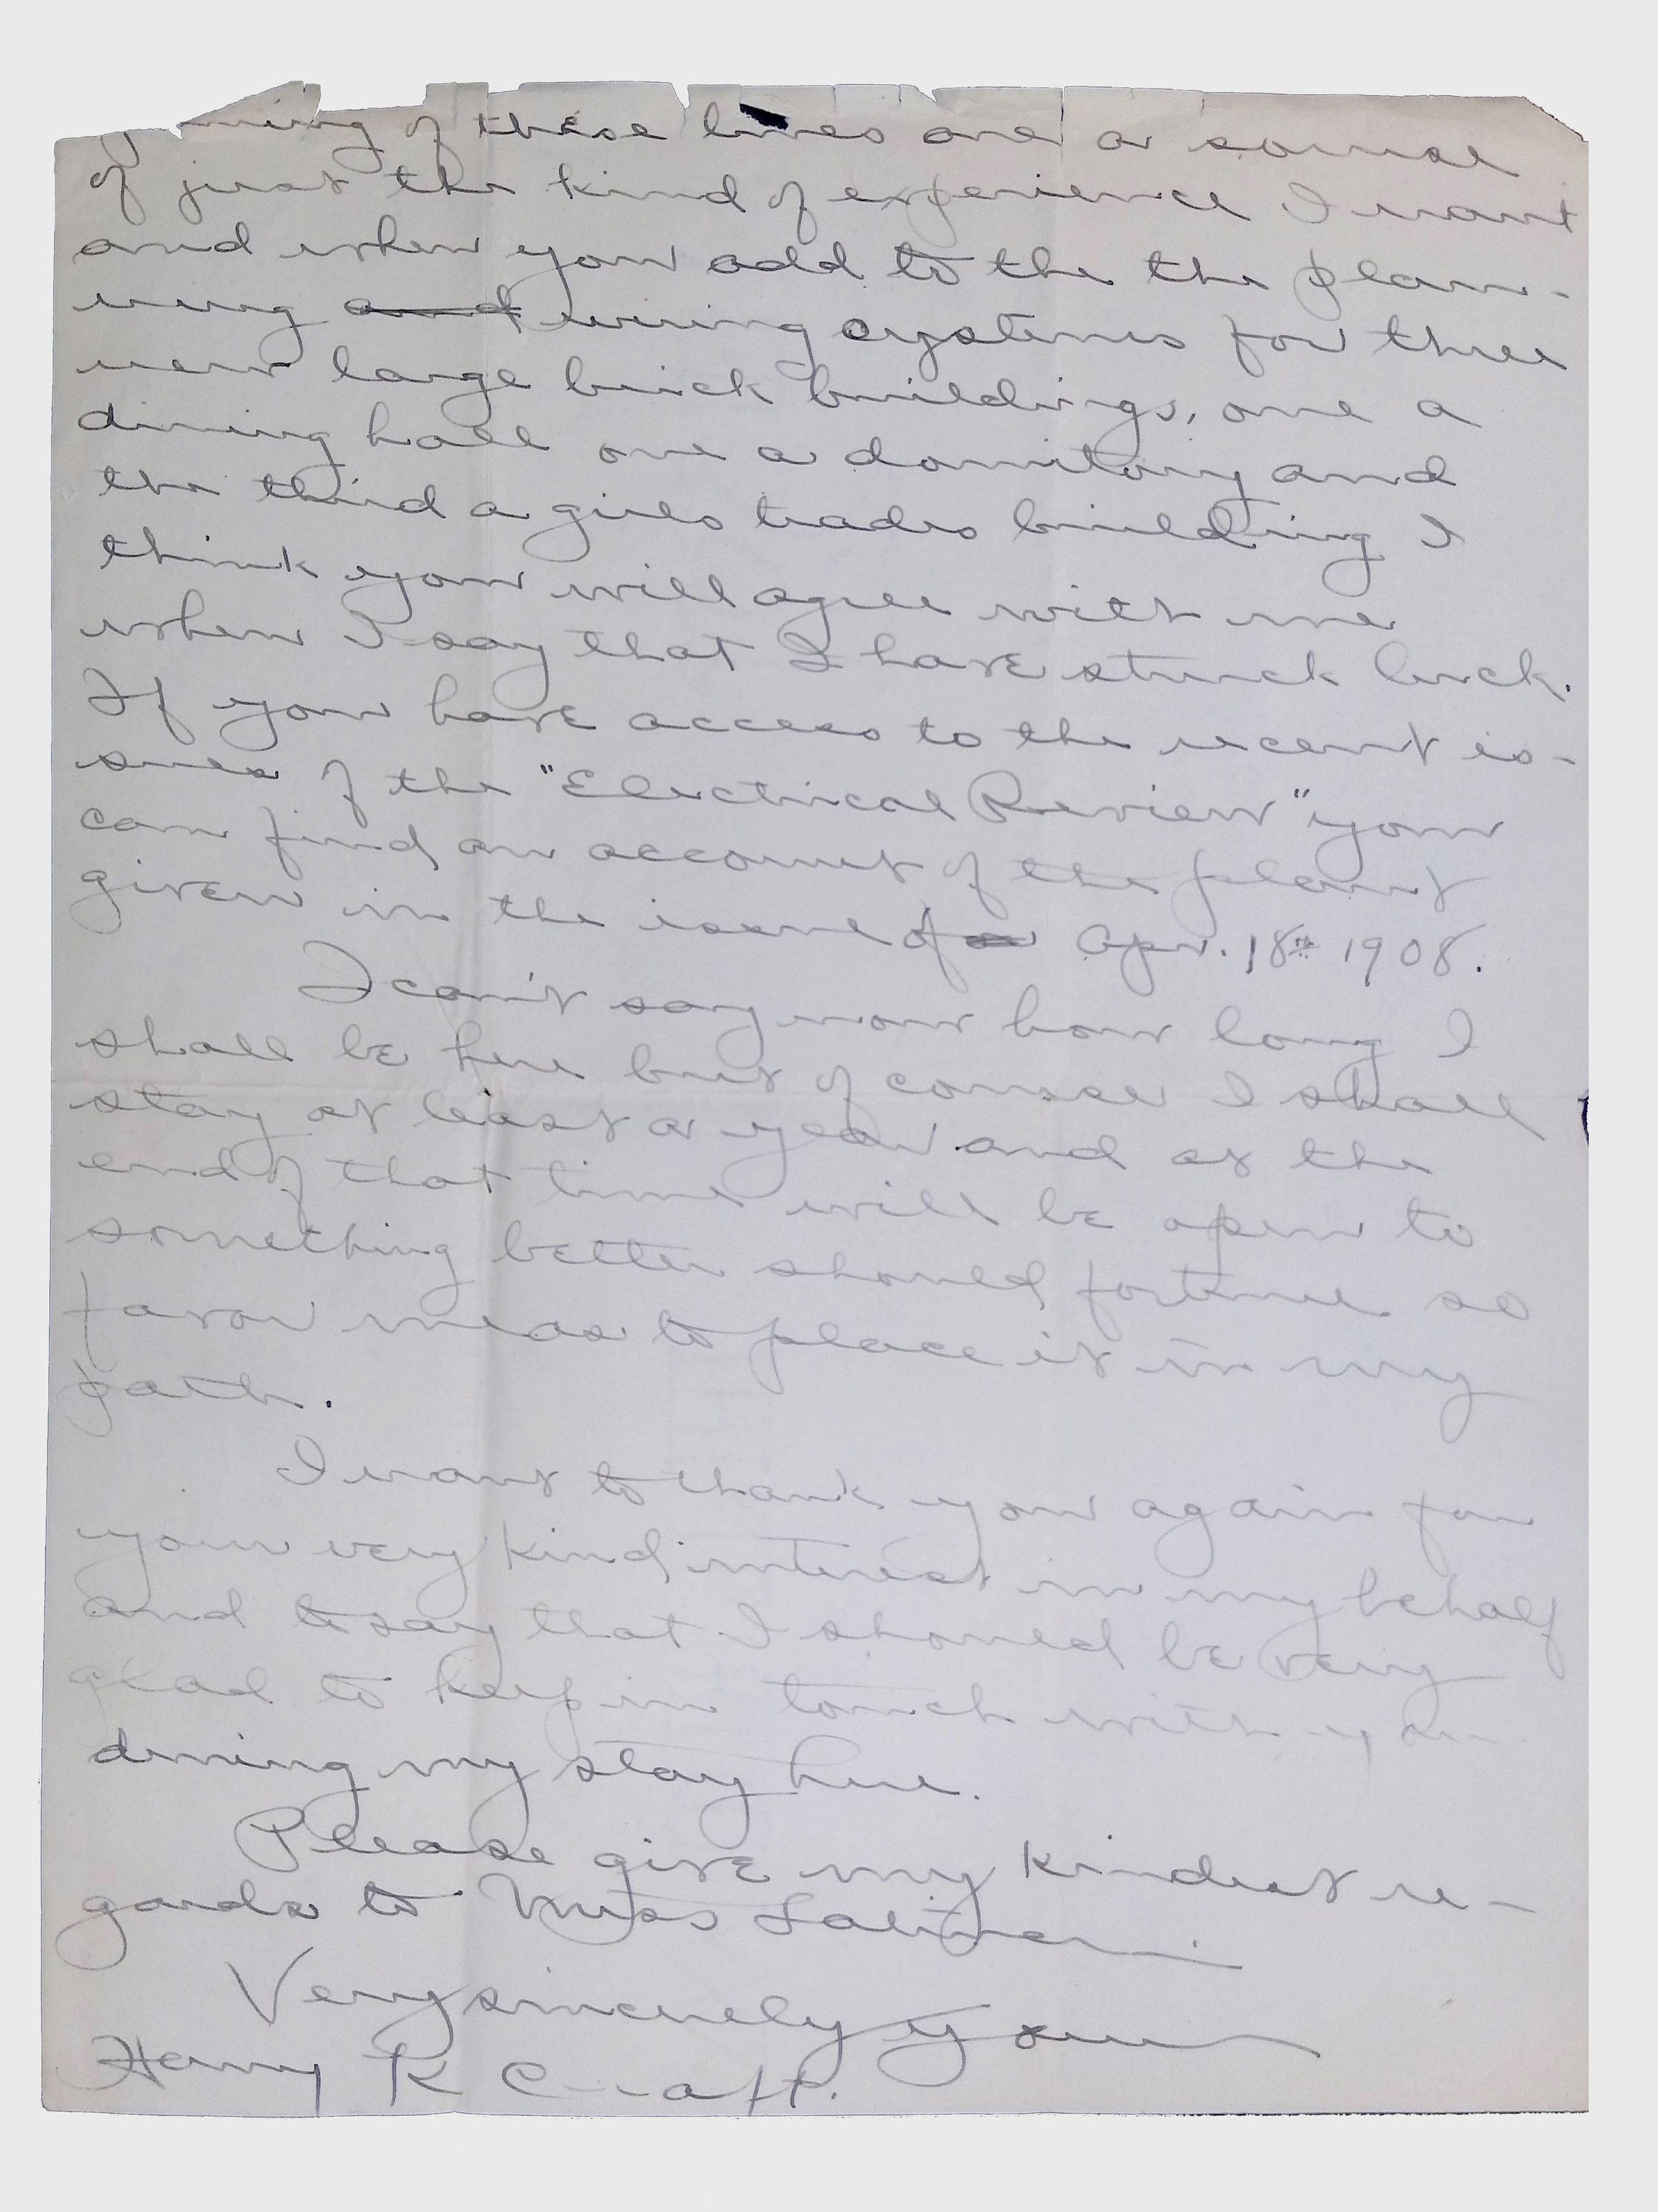 of these lines are a sourse
of just the kind of experience I want
and when you add to the the plan-
ning and wiring systems for three
new large brick buildings, one a
dining hall one a domitory and
the third a girls trades building I
think you will agree with me
when I say that I have struck luck.
If you have access to the recent is-
sues of the "Electrical Review" you
can find an account of the plant
given in the issue of Apr. 18th 1908.
I can't say now how long I
shall be here but of course I shall
stay at least a year and at the
end of that time will be open to
something better should fortune so
favor me as to place it in my
path.
I want to thank you again for
your very kind interest in my behalf
and to say that I should be very
glad to keep in touch with you
during my stay here.
Please give my kindest re-
gards to Miss Latimer.
Very sincerely yours
Henry K Craft.